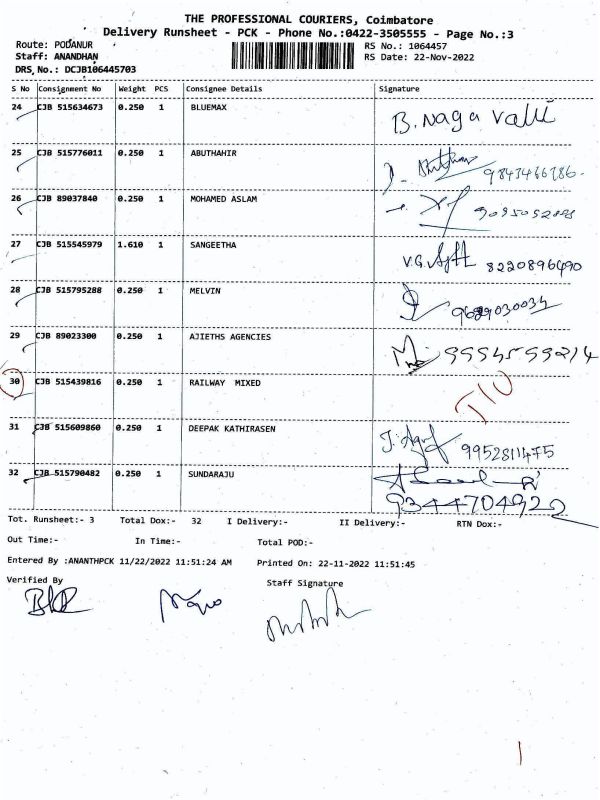 THE PROFESSIONAL COURIERS, Coimbatore
Delivery Runsheet - PCK - Phone No.:0422-3505555 - Page No.:3
Route: PODANUR RS No.: 1064457
Staff: ANANDHAN RS Date: 22-Nov-2022
DRS No.: DCJB106445703
S No Consignment No Weight PCS Consignee Details Signature
24 CJB 515634673 0.250 1 BLUEMAX B. Naga Valli
25 CJB 515776011 0.250 1 ABUTHAHIR
26 CJB 89037840 0.250 1 MOHAMED ASLAM
27 CJB 515545979 1.610 1 SANGEETHA 8220896490
28 CJB 515795288 0.250 1 MELVIN
29 CJB 89023300 0.250 1 AJIETHS AGENCIES
30 CJB 515439816 0.250 1 RAILWAY MIXED
31 CJB 515609860 0.250 1 DEEPAK KATHIRASEN 9952811475
32 CJB 515790482 0.250 1 SUNDARAJU 9344704922
Tot. Runsheet:- 3 Total Dox:- 32 I Delivery:- II Delivery:- RTN Dox:-
Out Time:- In Time:- Total POD:-
Entered By :ANANTHPCK 11/22/2022 11:51:24 AM Printed On: 22-11-2022 11:51:45
Verified By Staff Signature